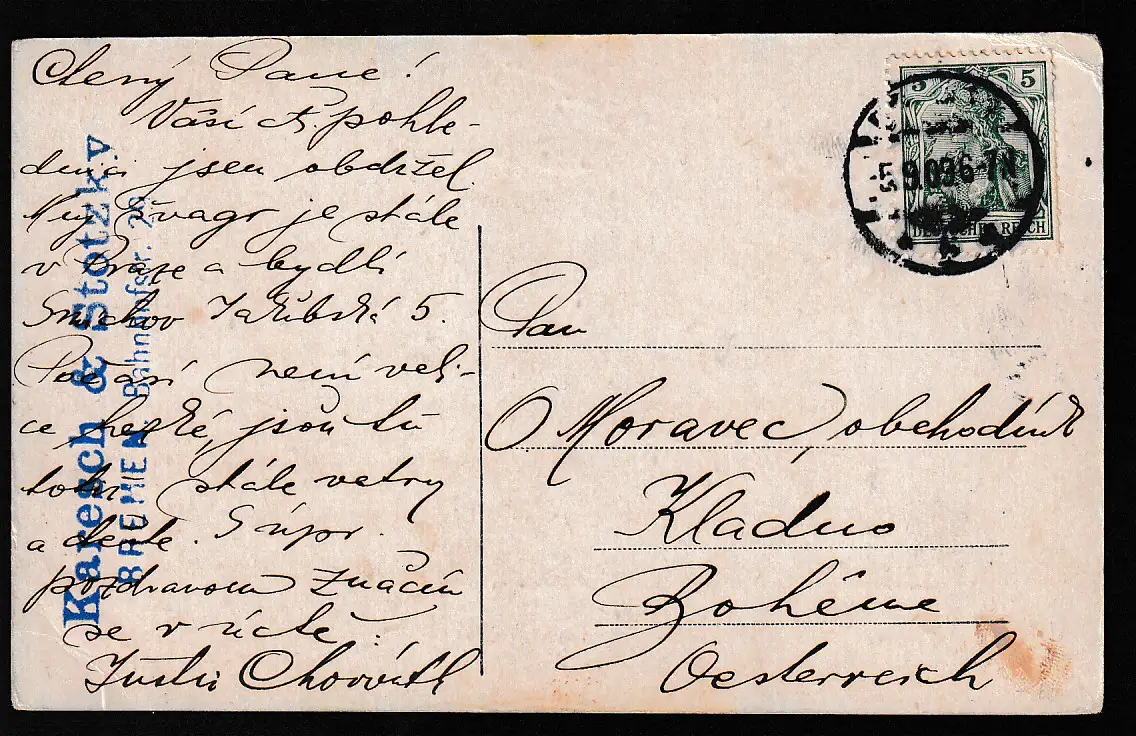 Ctený Pane!
Vaší ct. pohle-
dnici jsem obdržel.
Můj švagr je stále
v Praze a bydlí
Smíchov Jakubská 5.
Počasí není veli-
ce hezké, jsou tu
stále vetry
a deště. S úpr.
pozdravem značím
se v úctě:
Chorváth
Karesch & Stotzky
BREMEN Bahnhofstr.
5 5
5.9.09 6-7N
DEUTSCHES REICH
Pan
O Moravec, obchodník
Kladno
Bohême
Oesterreich